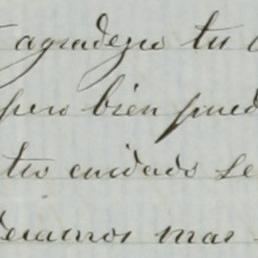 agradezco tu
pero bien pued
tu cuidado se
mas